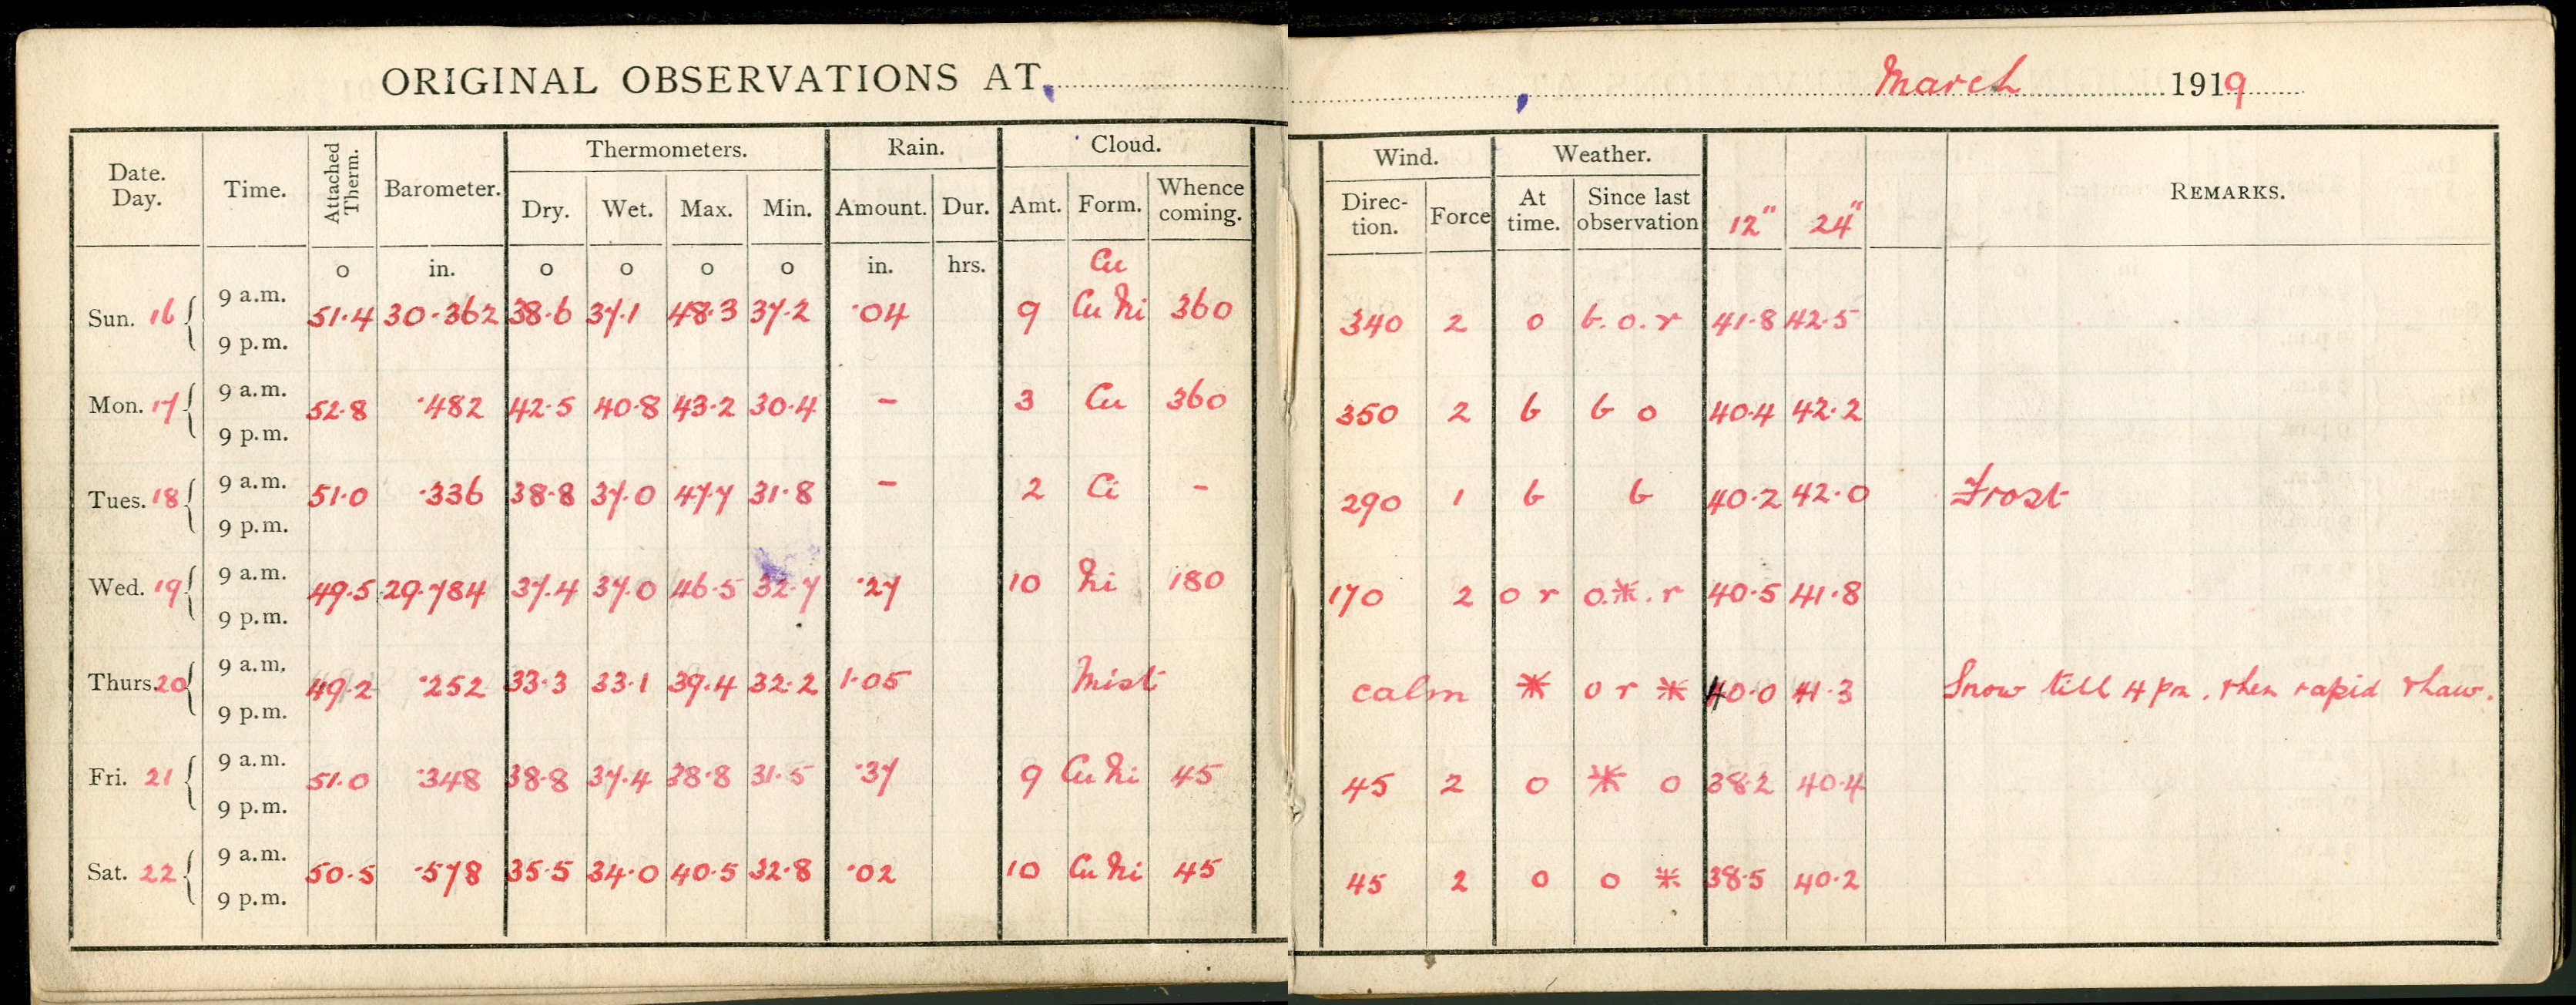 ORIGINAL OBSERVATIONS AT March 1919
Date. Day. Time. Attached Therm. Barometer. Thermometers. Rain. Cloud. Wind. Weather. 12" 24" REMARKS.
Dry. Wet. Max. Min. Amount. Dur. Amt. Form. Whence coming. Direc- tion. Force At time. Since last observation
o in. o o o o in. hrs. Cu
Sun. 16 9 a.m. 51.4 30.362 38.6 37.1 48.3 37.2 .04 9 Cu Ni 360 340 2 o b.o.r 41.8 42.5
9 p.m.
Mon. 17 9 a.m. 52.8 .482 42.5 40.8 43.2 30.4 - 3 Cu 360 350 2 b b o 40.4 42.2
9 p.m.
Tues. 18 9 a.m. 51.0 .336 38.8 37.0 47.7 31.8 - 2 Ci - 290 1 b b 40.2 42.0 Frost
9 p.m.
Wed. 19 9 a.m. 49.5 29.784 37.4 37.0 46.5 32.7 .27 10 Ni 180 170 2 o r o.*.r 40.5 41.8
9 p.m.
Thurs. 20 9 a.m. 49.2 .252 33.3 33.1 39.4 32.2 1.05 Mist calm * o r * 40.0 41.3 Snow till 4 pm. then rapid thaw.
9 p.m.
Fri. 21 9 a.m. 51.0 .348 38.8 37.4 38.8 31.5 .37 9 Cu Ni 45 45 2 o * o 38.2 40.4
9 p.m.
Sat. 22 9 a.m. 50.5 .578 35.5 34.0 40.5 32.8 .02 10 Cu Ni 45 45 2 o o * 38.5 40.2
9 p.m.